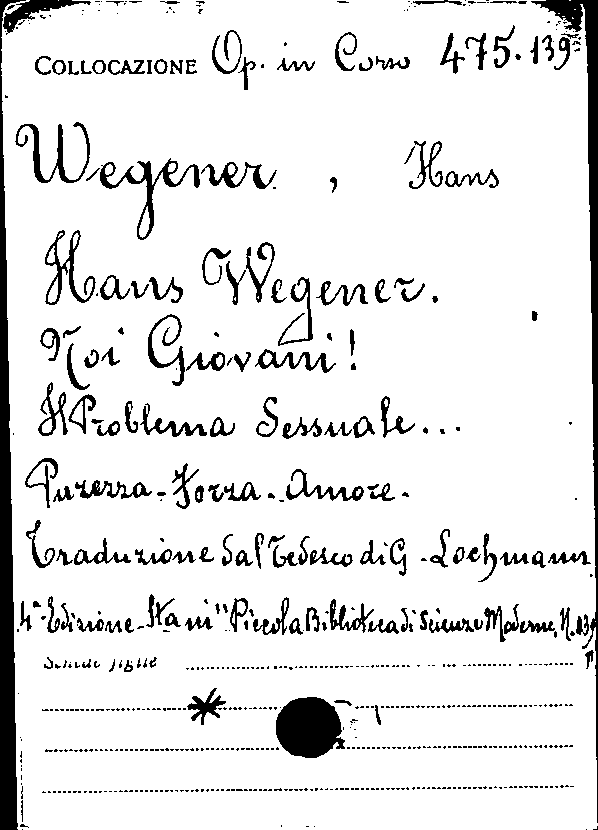 COLLOCAZIONE Op. in Corso 475.139
Wegener , Hans
Hans Wegener.
Noi Giovani!
Il Problema Sessuale...
Purezza - Forza - Amore.
Traduzione dal Tedesco di G. Lochmann
4ª Edizione - "Piccola Biblioteca di Scienze Moderne, N. 139
Schede figlie
*